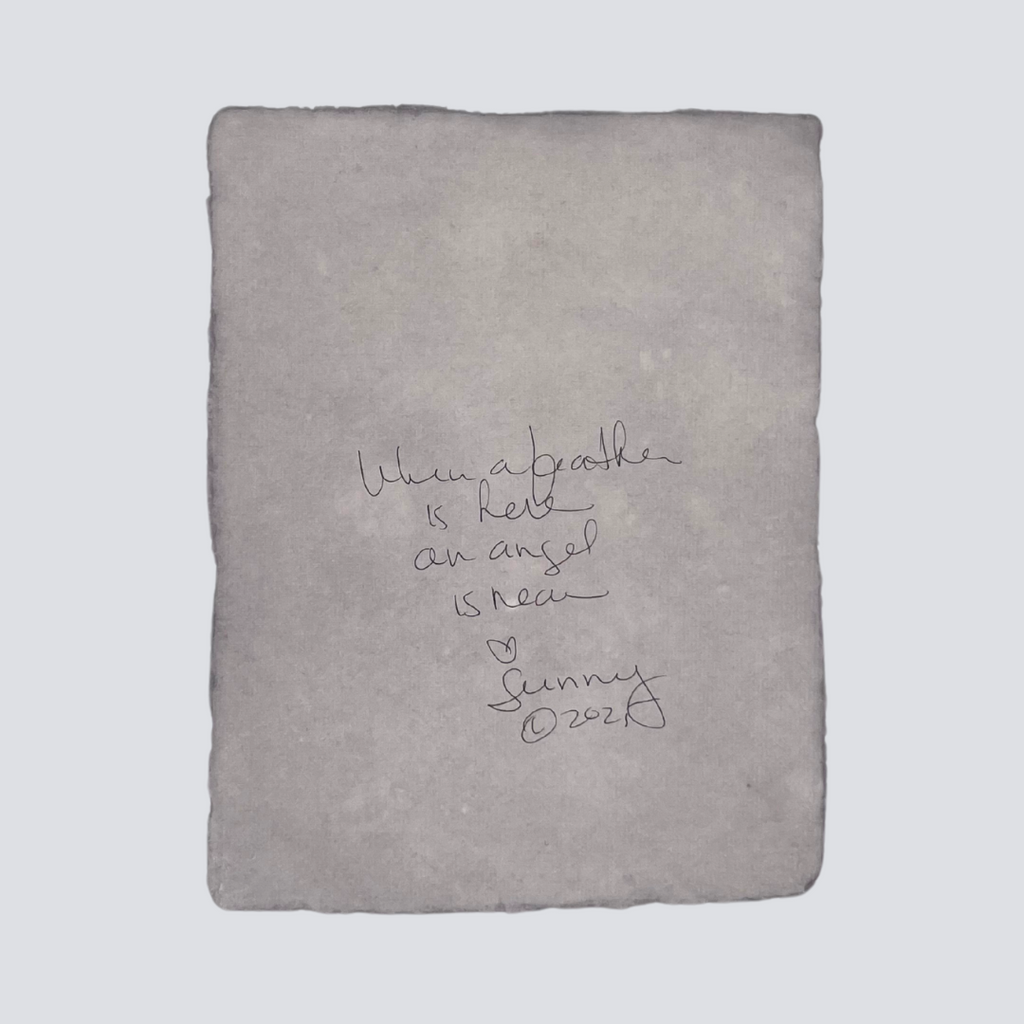 When a feather
is here
an angel
is near
♡
Sunny
©2021